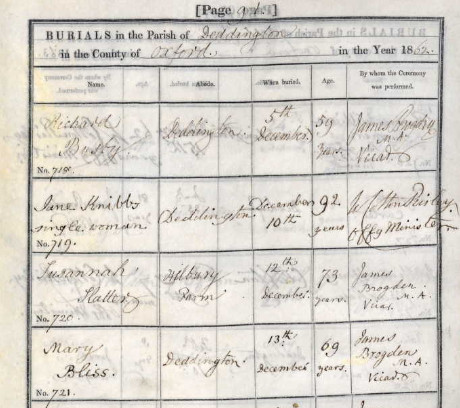 [Page 91.]
BURIALS in the Parish of Deddington
in the County of Oxford. in the Year 1862.
Name. Abode. When buried. Age. By whom the Ceremony was performed.
Richard Deddington. 5th 59 James Brogden
Busby December. years. M.A.
No. 718. Vicar.
Jane Knibbs Deddington. December 92
single woman 10th years Offg Minister
No. 719.
Susannah Hatter Farm 12th 73 James
December. years. Brogden
No. 720. Vicar. M.A.
Mary Deddington. 13th 69 James
Bliss. December. years. Brogden
No. 721. M.A.
Vicar.